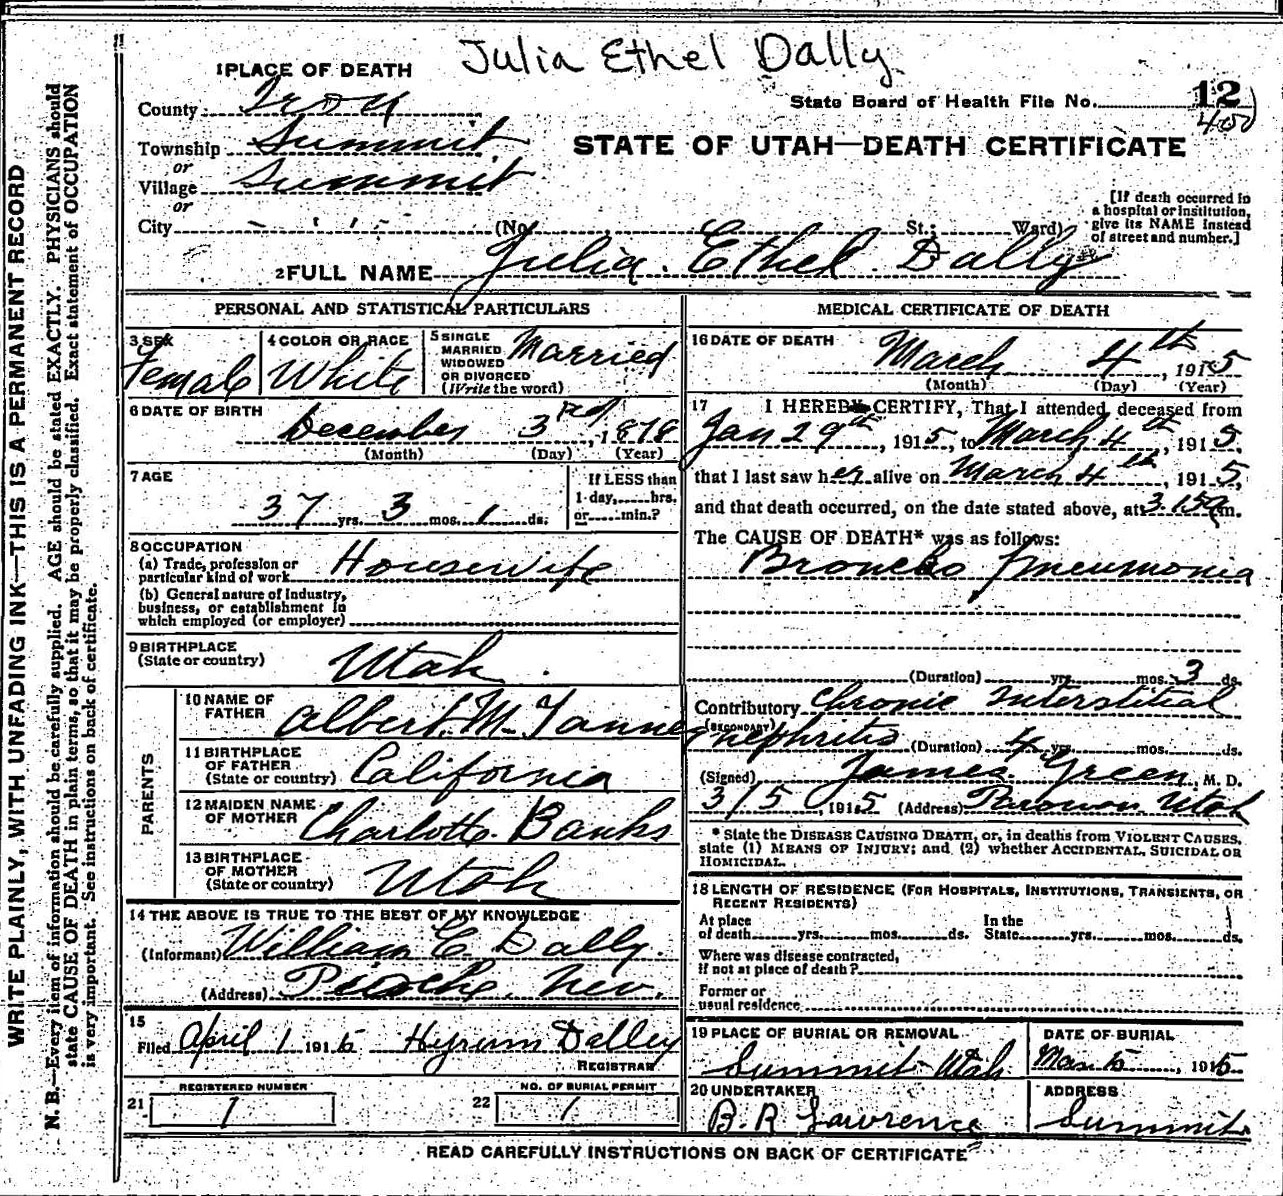 Julia Ethel Dally
1 PLACE OF DEATH
County Iron
State Board of Health File No. 12
400
Township Summit
or
Village Summit
or
STATE OF UTAH—DEATH CERTIFICATE
City (No. St.; Ward)
[If death occurred in
a hospital or institution,
give its NAME instead
of street and number.]
2 FULL NAME Julia. Ethel. Dally
PERSONAL AND STATISTICAL PARTICULARS
3 SEX
Female
4 COLOR OR RACE
White
5 SINGLE
MARRIED
WIDOWED
OR DIVORCED
(Write the word)
Married
6 DATE OF BIRTH
December 3rd, 1878
(Month) (Day) (Year)
7 AGE
37 yrs. 3 mos. 1 ds.
If LESS than
1 day, hrs.
or min.?
8 OCCUPATION
(a) Trade, profession or
particular kind of work Housewife
(b) General nature of industry,
business, or establishment in
which employed (or employer)
9 BIRTHPLACE
(State or country) Utah.
PARENTS
10 NAME OF
FATHER Albert. M. Tanner
11 BIRTHPLACE
OF FATHER
(State or country) California
12 MAIDEN NAME
OF MOTHER Charlotte Banks
13 BIRTHPLACE
OF MOTHER
(State or country) Utah
14 THE ABOVE IS TRUE TO THE BEST OF MY KNOWLEDGE
(Informant) William E. Dally.
(Address) Pioche, Nev.
15
Filed April 1 1915 Hyrum Dalley
REGISTRAR
REGISTERED NUMBER
21 1
NO. OF BURIAL PERMIT
22 1
MEDICAL CERTIFICATE OF DEATH
16 DATE OF DEATH
March 4th, 1915
(Month) (Day) (Year)
17 I HEREBY CERTIFY, That I attended deceased from
Jan 29th, 1915, to March 4th, 1915.
that I last saw her alive on March 4th, 1915,
and that death occurred, on the date stated above, at 3.15 a m.
The CAUSE OF DEATH* was as follows:
Broncho Pneumonia
(Duration) yrs. mos. 3 ds.
Contributory Chronic Interstitial
(SECONDARY) nephritis (Duration) 4 yrs. mos. ds.
(Signed) James. Green, M. D.
3/5 1915 (Address) Parowan Utah
* State the DISEASE CAUSING DEATH, or, in deaths from VIOLENT CAUSES,
state (1) MEANS OF INJURY; and (2) whether ACCIDENTAL, SUICIDAL OR
HOMICIDAL.
18 LENGTH OF RESIDENCE (FOR HOSPITALS, INSTITUTIONS, TRANSIENTS, OR
RECENT RESIDENTS)
At place
of death yrs. mos. ds.
In the
State yrs. mos. ds.
Where was disease contracted,
if not at place of death?
Former or
usual residence
19 PLACE OF BURIAL OR REMOVAL
Summit Utah
DATE OF BURIAL
Mar 5, 1915
20 UNDERTAKER
B. R Lawrence
ADDRESS
Summit
READ CAREFULLY INSTRUCTIONS ON BACK OF CERTIFICATE
WRITE PLAINLY, WITH UNFADING INK—THIS IS A PERMANENT RECORD
N. B.—Every item of information should be carefully supplied. AGE should be stated EXACTLY. PHYSICIANS should
state CAUSE OF DEATH in plain terms, so that it may be properly classified. Exact statement of OCCUPATION
is very important. See instructions on back of certificate.